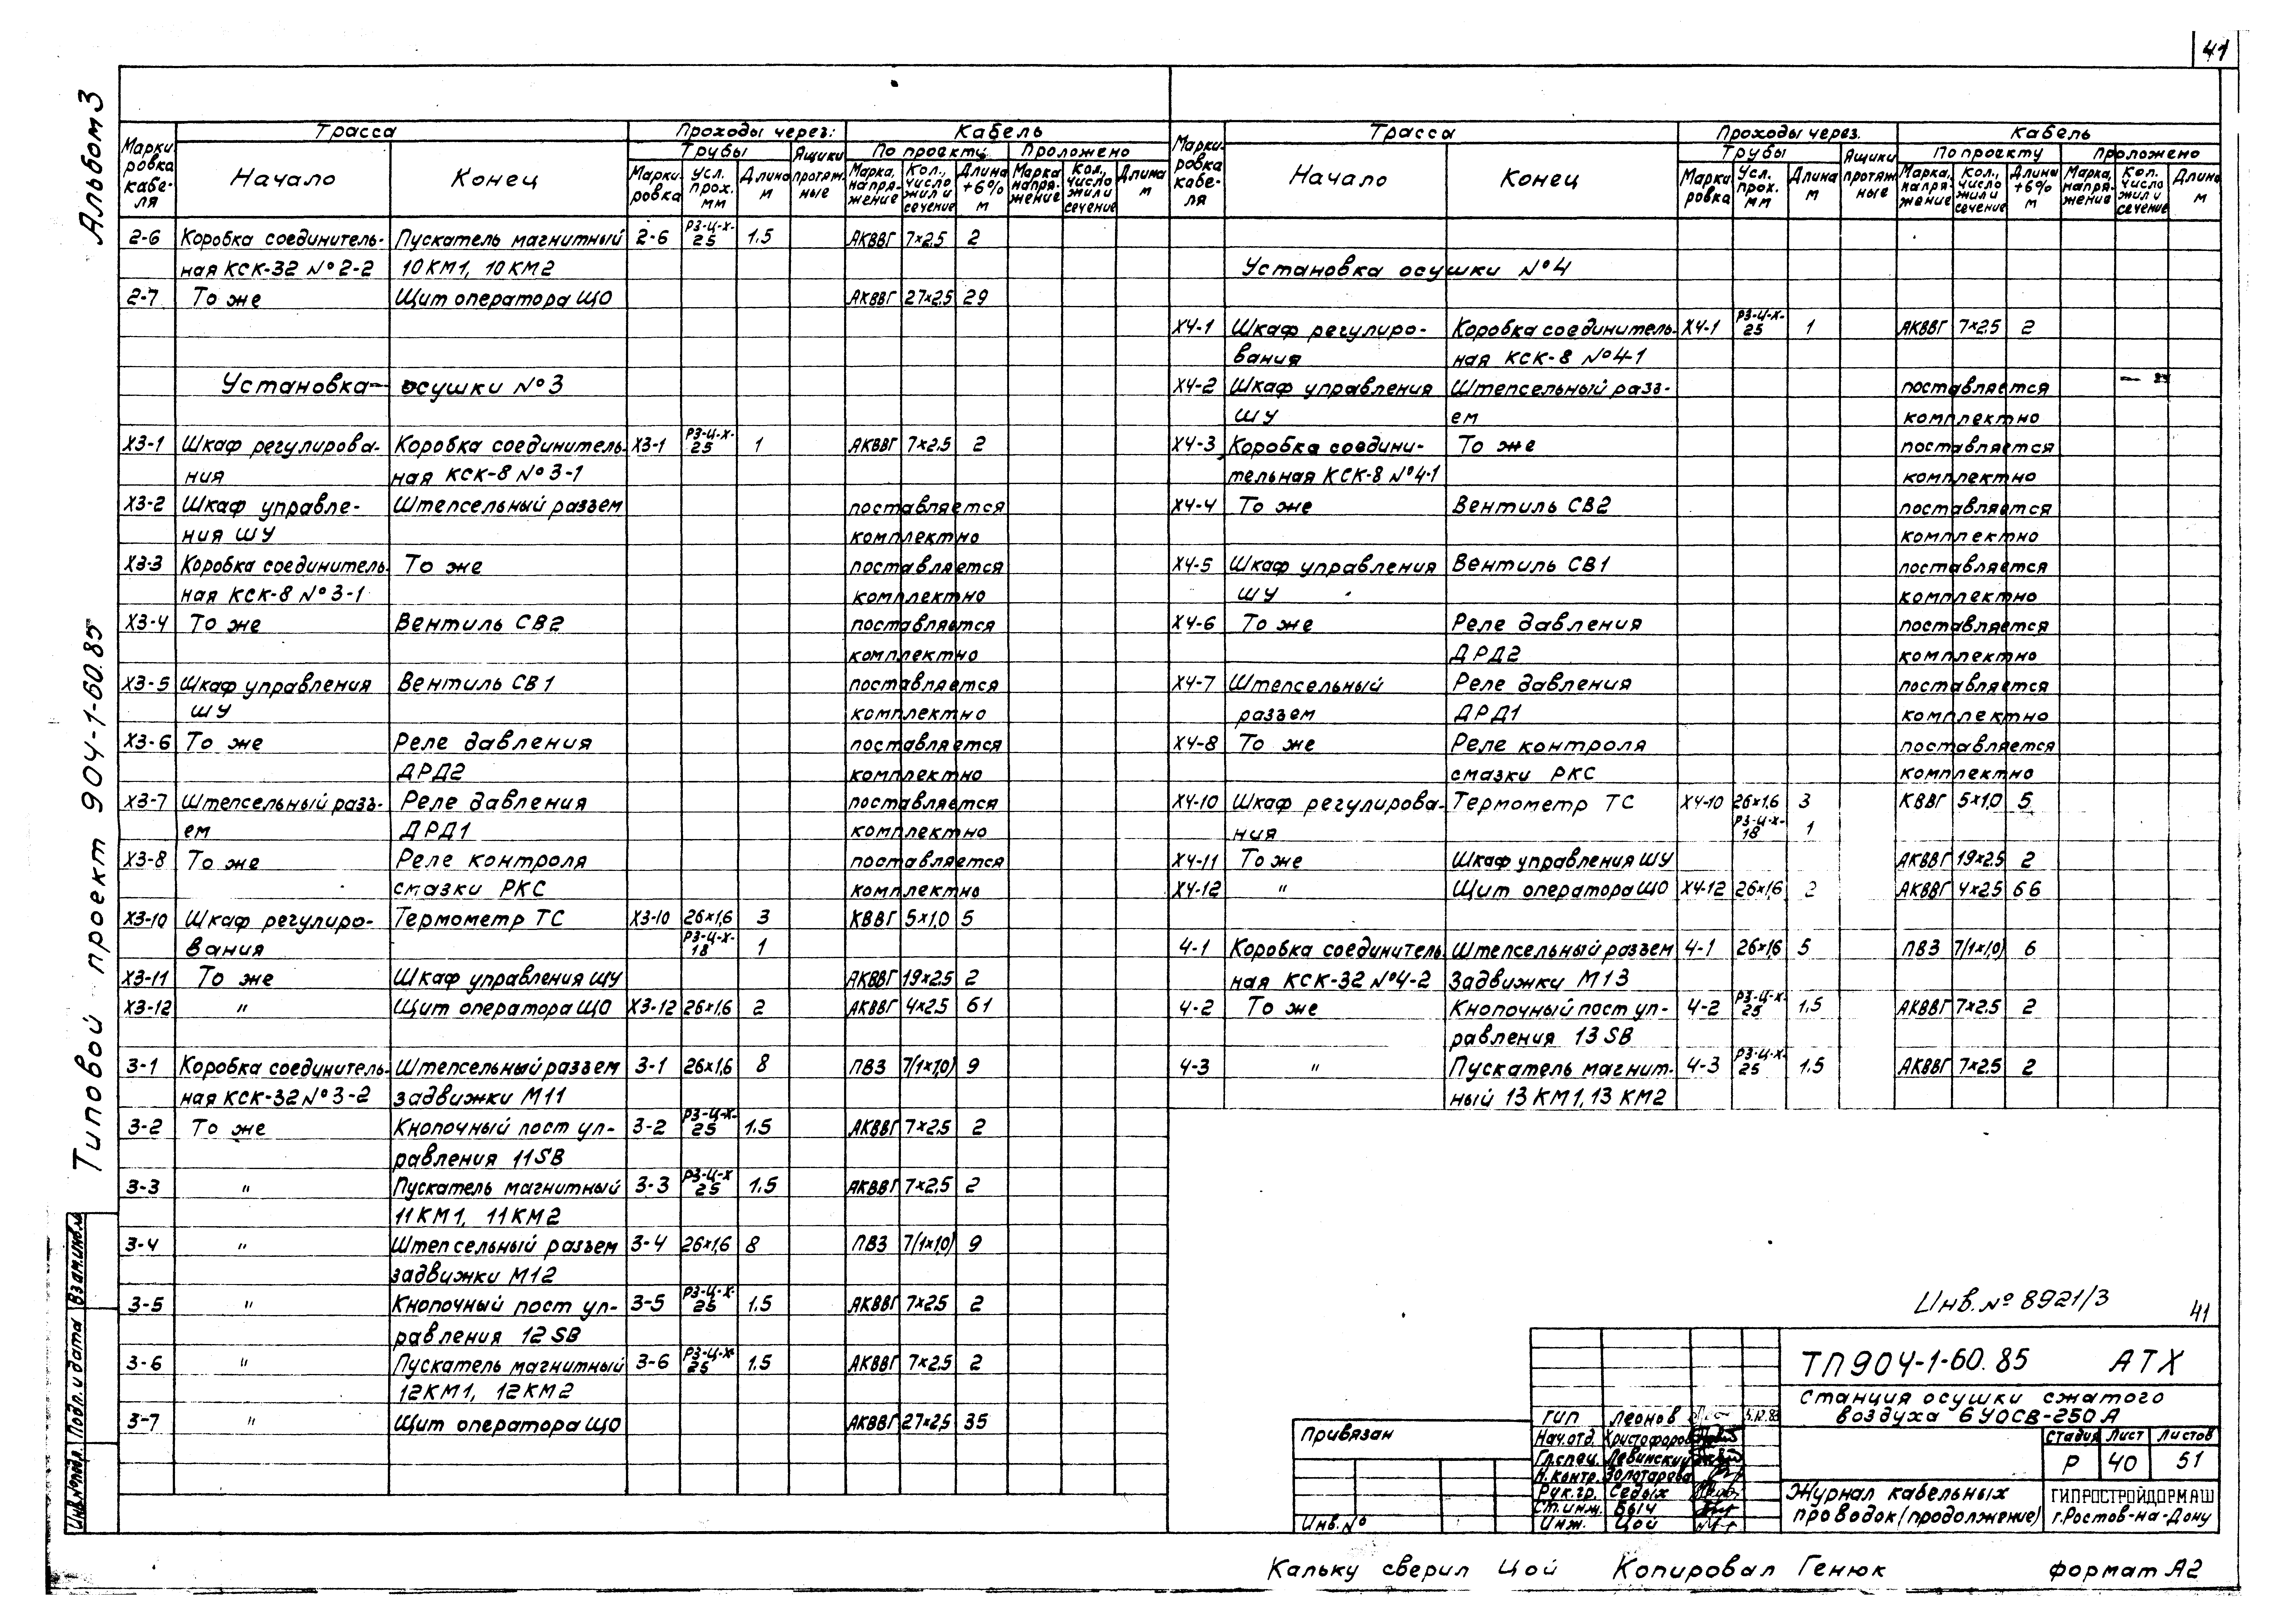 41
Альбом 3
Типовой проект 904-1-60.85
Инв.№подл. Подп. и дата Взам.инв.№
Марки-ровка кабе-ля | Трасса | Проходы через: | Кабель
Начало | Конец | Трубы | Ящики протяж-ные | По проекту | Проложено
Марки-ровка | Усл. прох. мм | Длина м | Марка, напря-жение | Кол., число жил и сечение | Длина +6% м | Марка напря-жение | Кол., число жил и сечение | Длина м
2-6 Коробка соединитель- Пускатель магнитный 2-6 РЗ-Ц-Х-25 1.5 АКВВГ 7×2.5 2
ная КСК-32 №2-2 10КМ1, 10КМ2
2-7 То же Щит оператора ЩО АКВВГ 27×2.5 29
Установка осушки №3
Х3-1 Шкаф регулирова- Коробка соединитель- Х3-1 РЗ-Ц-Х-25 1 АКВВГ 7×2.5 2
ния ная КСК-8 №3-1
Х3-2 Шкаф управле- Штепсельный разъем поставляется
ния ШУ комплектно
Х3-3 Коробка соединитель- То же поставляется
ная КСК-8 №3-1 комплектно
Х3-4 То же Вентиль СВ2 поставляется
комплектно
Х3-5 Шкаф управления Вентиль СВ1 поставляется
ШУ комплектно
Х3-6 То же Реле давления поставляется
ДРД2 комплектно
Х3-7 Штепсельный разъ- Реле давления поставляется
ем ДРД1 комплектно
Х3-8 То же Реле контроля поставляется
смазки РКС комплектно
Х3-10 Шкаф регулиро- Термометр ТС Х3-10 26×1,6 3 КВВГ 5×1,0 5
вания РЗ-Ц-Х-18 1
Х3-11 То же Шкаф управления ШУ АКВВГ 19×2.5 2
Х3-12 " Щит оператора ЩО Х3-12 26×1,6 2 АКВВГ 4×2.5 61
3-1 Коробка соединитель- Штепсельный разъем 3-1 26×1,6 8 ПВ3 7(1×1,0) 9
ная КСК-32 №3-2 задвижки М11
3-2 То же Кнопочный пост уп- 3-2 РЗ-Ц-Х-25 1.5 АКВВГ 7×2,5 2
равления 11SB
3-3 " Пускатель магнитный 3-3 РЗ-Ц-Х 25 1.5 АКВВГ 7×2,5 2
11КМ1, 11КМ2
3-4 " Штепсельный разъем 3-4 26×1,6 8 ПВ3 7(1×1,0) 9
задвижки М12
3-5 " Кнопочный пост уп- 3-5 РЗ-Ц-Х-25 1.5 АКВВГ 7×2.5 2
равления 12SB
3-6 " Пускатель магнитный 3-6 РЗ-Ц-Х-25 1.5 АКВВГ 7×2,5 2
12КМ1, 12КМ2
3-7 " Щит оператора ЩО АКВВГ 27×2,5 35
Марки-ровка кабе-ля | Трасса | Проходы через. | Кабель
Начало | Конец | Трубы | Ящики протяж-ные | По проекту | Проложено
Марки ровка | Усл. прох. мм | Длина м | Марка, напря-жение | Кол., число жил и сечение | Длина +6% м | Марка, напря-жение | Кол. число жил и сечение | Длина м
Установка осушки №4
Х4-1 Шкаф регулиро- Коробка соединитель- Х4-1 РЗ-Ц-Х-25 1 АКВВГ 7×2.5 2
вания ная КСК-8 №4-1
Х4-2 Шкаф управления Штепсельный разъ- поставляется
ШУ ем комплектно
Х4-3 Коробка соедини- То же поставляется
тельная КСК-8 №4-1 комплектно
Х4-4 То же Вентиль СВ2 поставляется
комплектно
Х4-5 Шкаф управления Вентиль СВ1 поставляется
ШУ комплектно
Х4-6 То же Реле давления поставляется
ДРД2 комплектно
Х4-7 Штепсельный Реле давления поставляется
разъем ДРД1 комплектно
Х4-8 То же Реле контроля поставляется
смазки РКС комплектно
Х4-10 Шкаф регулирова- Термометр ТС Х4-10 26×1,6 3 КВВГ 5×1,0 5
ния РЗ-Ц-Х-18 1
Х4-11 То же Шкаф управления ШУ АКВВГ 19×2.5 2
Х4-12 " Щит оператора ЩО Х4-12 26×1,6 2 АКВВГ 4×2.5 66
4-1 Коробка соединитель- Штепсельный разъем 4-1 26×1,6 5 ПВ3 7(1×1,0) 6
ная КСК-32 №4-2 Задвижки М13
4-2 То же Кнопочный пост уп- 4-2 РЗ-Ц-Х-25 1.5 АКВВГ 7×2.5 2
равления 13SB
4-3 " Пускатель магнит- 4-3 РЗ-Ц-Х-25 1.5 АКВВГ 7×2.5 2
ный 13КМ1, 13КМ2
Инв.№ 8921/3
41
Привязан
Инв.№
ГИП Леонов
Нач.отд. Христофоров
Гл.спец. Левинский
Н.контр. Золотарева
Рук.гр. Седых
Ст.инж. Быч
Инж. Цой
ТП904-1-60.85 АТХ
Станция осушки сжатого
воздуха 6УОСВ-250А
Стадия Лист Листов
Р 40 51
Журнал кабельных
проводок (продолжение)
ГИПРОСТРОЙДОРМАШ
г.Ростов-на-Дону
Кальку сверил Цой Копировал Генюк формат А2